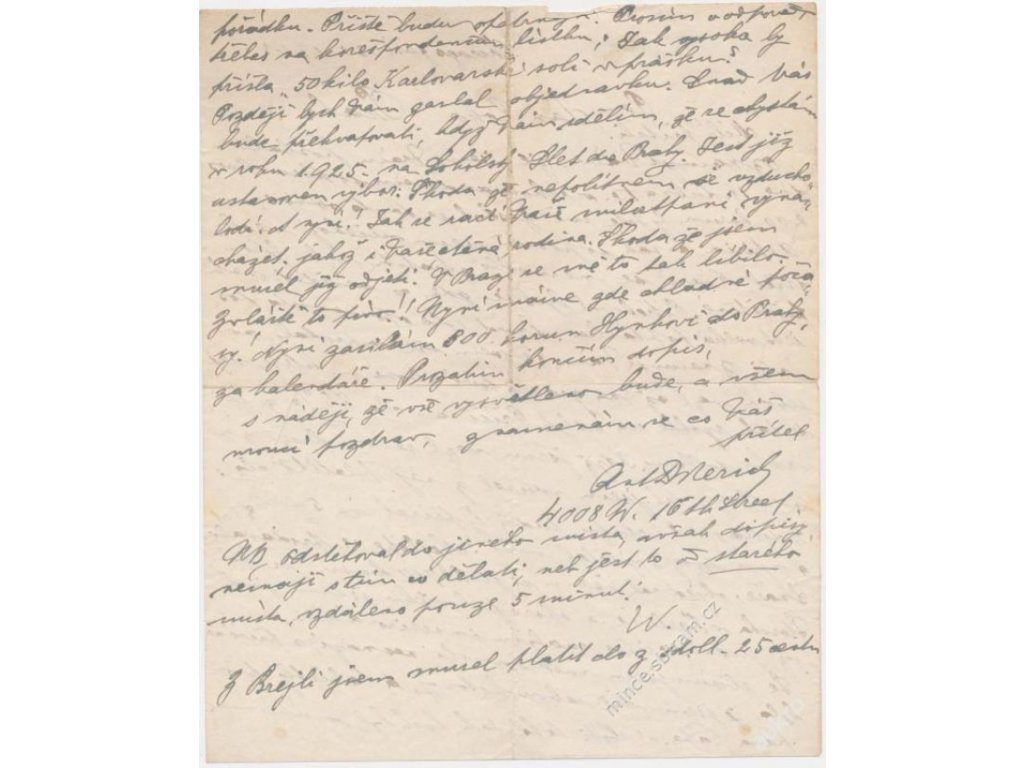 pořádku. Příště budu opatrnější. Prosím o odpověď
třebas na korespondenčním lístku: Jak vysoko by
přišla 50 kilo Karlovarské soli v prášku?
Později bych Vám zaslal objednavku. Snad Vás
bude překvapovati, když Vám sdělím, že se chystám
v roku 1925. na Sokolský Slet do Prahy. Jest již
ustanoven výbor. Škoda že nepolítnem se vzducho
lodí. A nyní! Jak se račí Vaše milostpaní vyna-
cházet. jakož i Vaše ctěné rodina. Škoda že jsem
musel již odjeti! V Praze se mě to tak líbilo.
Zvláště to pivo!! Nyní máme zde chladné poča-
sy! Nyní zasílám 600 korun Hynkovi do Prahy,
za kalendáře. Prozatím končím dopis,
s nadějí, že vše vysvětleno bude, a všem
moucí pozdrav, znamenám se co Váš
přítel
Ant
4008 W. 16th Street
NB, odstěhoval do jiného místa, však dopisy
nemají s tím co dělati, neb jest to z starého
místa, vzdáleno pouze 5 minut!
W.
Z Brejlí jsem musel platit clo 2 doll. 25 centu
mince.ssbram.cz